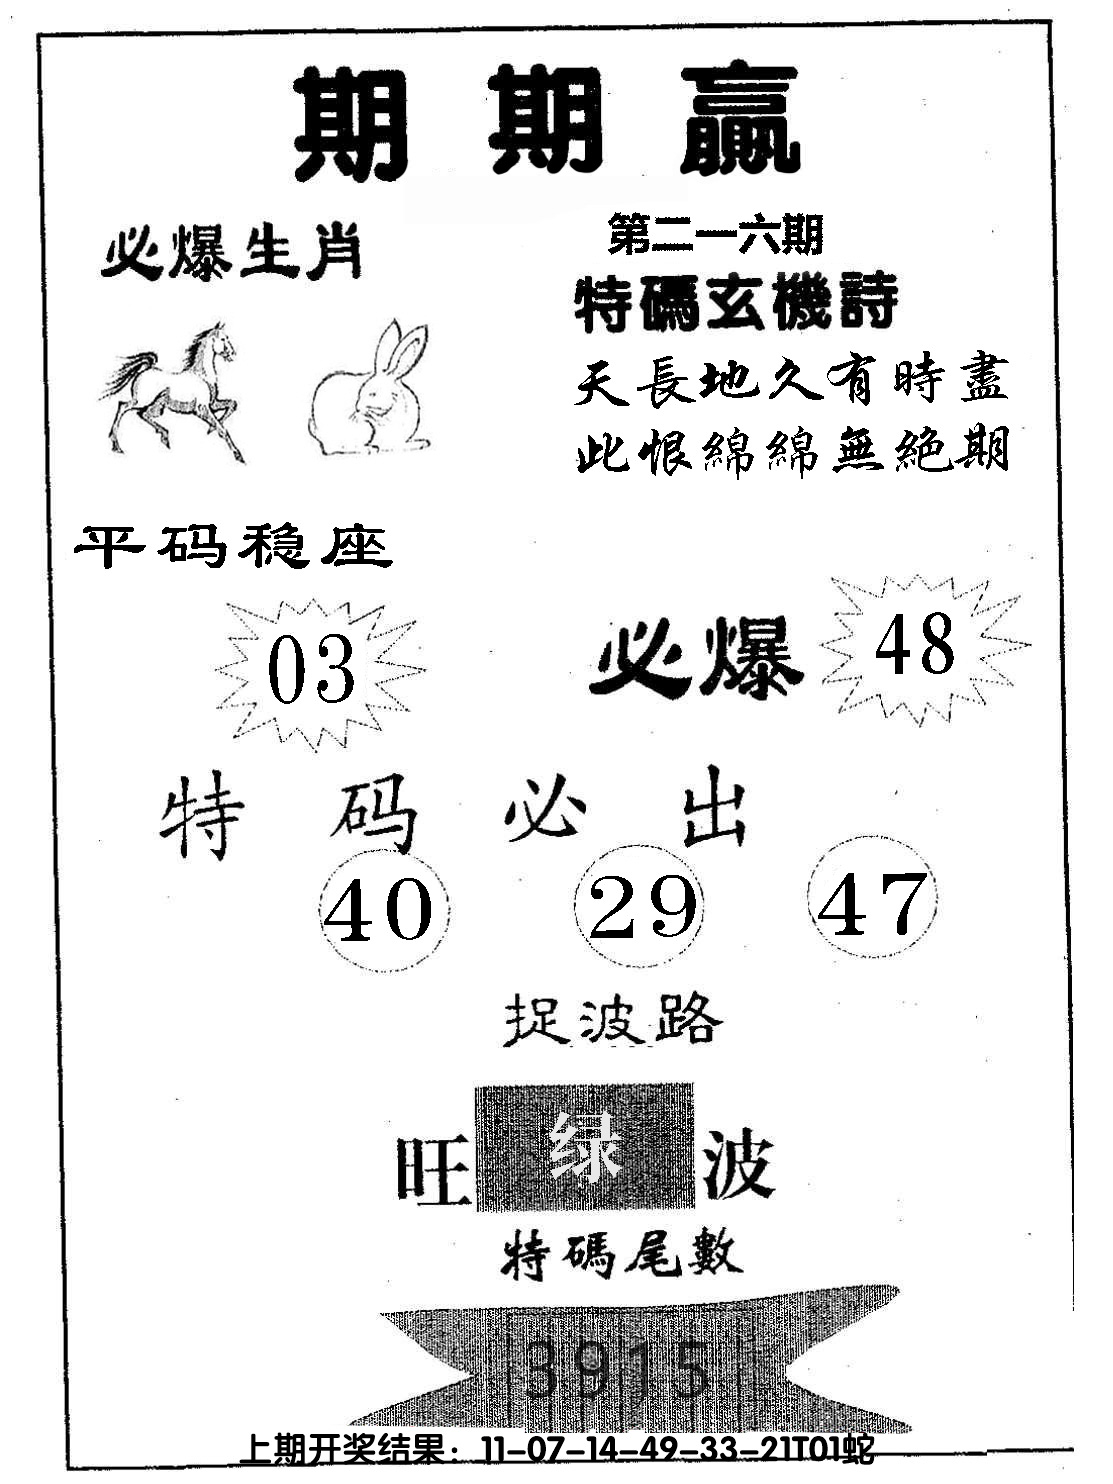 期期贏
必爆生肖
第二一六期
特碼玄機詩
天長地久有時盡
此恨綿綿無絕期
平码稳座
03
必爆 48
特码必出
40 29 47
捉波路
旺 绿 波
特碼尾數
3915
上期开奖结果：11-07-14-49-33-21T01蛇